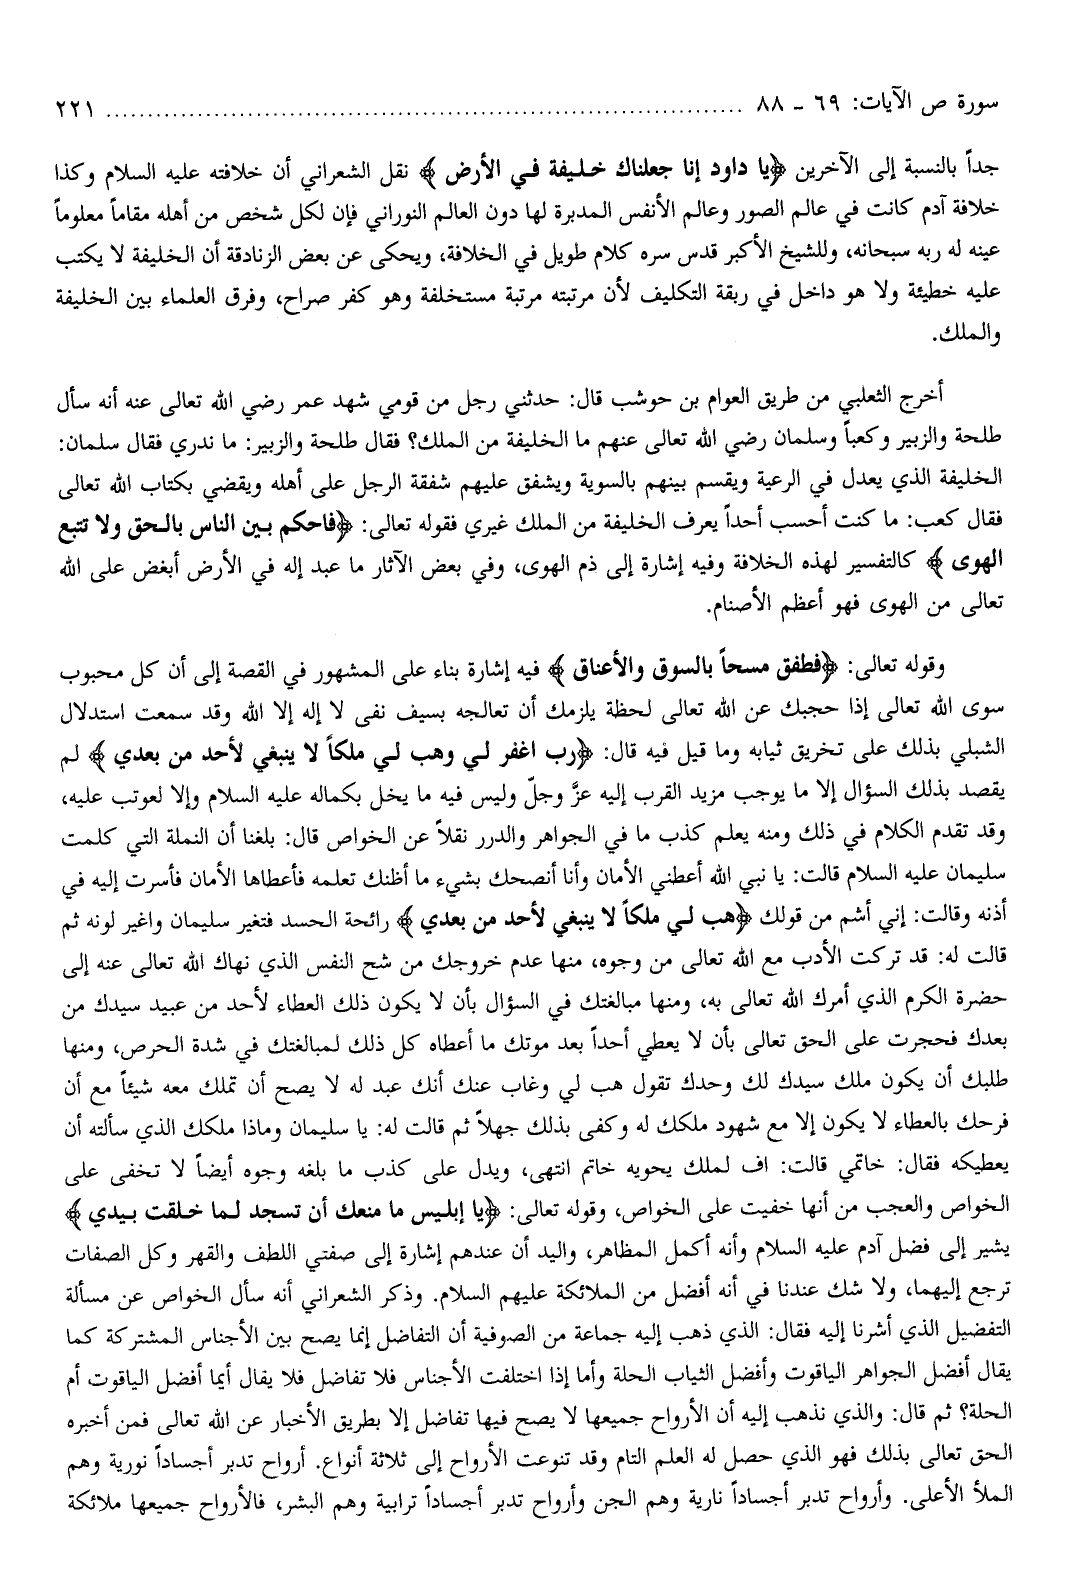 سورة ص الآيات: ٦٩ - ٨٨ ........................................................................ ٢٢١
جداً بالنسبة إلى الآخرين ﴿يا داود إنا جعلناك خليفة في الأرض﴾ نقل الشعراني أن خلافته عليه السلام وكذا
خلافة آدم كانت في عالم الصور وعالم الأنفس المدبرة لها دون العالم النوراني فإن لكل شخص من أهله مقاماً معلوماً
عينه له ربه سبحانه، وللشيخ الأكبر قدس سره كلام طويل في الخلافة، ويحكى عن بعض الزنادقة أن الخليفة لا يكتب
عليه خطيئة ولا هو داخل في ربقة التكليف لأن مرتبته مرتبة مستخلفة وهو كفر صراح، وفرق العلماء بين الخليفة
والملك.
أخرج الثعلبي من طريق العوام بن حوشب قال: حدثني رجل من قومي شهد عمر رضي الله تعالى عنه أنه سأل
طلحة والزبير وكعباً وسلمان رضي الله تعالى عنهم ما الخليفة من الملك؟ فقال طلحة والزبير: ما ندري فقال سلمان:
الخليفة الذي يعدل في الرعية ويقسم بينهم بالسوية ويشفق عليهم شفقة الرجل على أهله ويقضي بكتاب الله تعالى
فقال كعب: ما كنت أحسب أحداً يعرف الخليفة من الملك غيري فقوله تعالى: ﴿فاحكم بين الناس بالحق ولا تتبع
الهوى﴾ كالتفسير لهذه الخلافة وفيه إشارة إلى ذم الهوى، وفي بعض الآثار ما عبد إله في الأرض أبغض على الله
تعالى من الهوى فهو أعظم الأصنام.
وقوله تعالى: ﴿فطفق مسحاً بالسوق والأعناق﴾ فيه إشارة بناء على المشهور في القصة إلى أن كل محبوب
سوى الله تعالى إذا حجبك عن الله تعالى لحظة يلزمك أن تعالجه بسيف نفى لا إله إلا الله وقد سمعت استدلال
الشبلي بذلك على تخريق ثيابه وما قيل فيه قال: ﴿رب اغفر لي وهب لي ملكاً لا ينبغي لأحد من بعدي﴾ لم
يقصد بذلك السؤال إلا ما يوجب مزيد القرب إليه عزَّ وجلّ وليس فيه ما يخل بكماله عليه السلام وإلا لعوتب عليه،
وقد تقدم الكلام في ذلك ومنه يعلم كذب ما في الجواهر والدرر نقلاً عن الخواص قال: بلغنا أن النملة التي كلمت
سليمان عليه السلام قالت: يا نبي الله أعطني الأمان وأنا أنصحك بشيء ما أظنك تعلمه فأعطاها الأمان فأسرت إليه في
أذنه وقالت: إني أشم من قولك ﴿هب لي ملكاً لا ينبغي لأحد من بعدي﴾ رائحة الحسد فتغير سليمان واغير لونه ثم
قالت له: قد تركت الأدب مع الله تعالى من وجوه، منها عدم خروجك من شح النفس الذي نهاك الله تعالى عنه إلى
حضرة الكرم الذي أمرك الله تعالى به، ومنها مبالغتك في السؤال بأن لا يكون ذلك العطاء لأحد من عبيد سيدك من
بعدك فحجرت على الحق تعالى بأن لا يعطي أحداً بعد موتك ما أعطاه كل ذلك لمبالغتك في شدة الحرص، ومنها
طلبك أن يكون ملك سيدك لك وحدك تقول هب لي وغاب عنك أنك عبد له لا يصح أن تملك معه شيئاً مع أن
فرحك بالعطاء لا يكون إلا مع شهود ملكك له وكفى بذلك جهلاً ثم قالت له: يا سليمان وماذا ملكك الذي سألته أن
يعطيكه فقال: خاتمي قالت: اف لملك يحويه خاتم انتهى، ويدل على كذب ما بلغه وجوه أيضاً لا تخفى على
الخواص والعجب من أنها خفيت على الخواص، وقوله تعالى: ﴿يا إبليس ما منعك أن تسجد لما خلقت بيدي﴾
يشير إلى فضل آدم عليه السلام وأنه أكمل المظاهر، واليد أن عندهم إشارة إلى صفتي اللطف والقهر وكل الصفات
ترجع إليهما، ولا شك عندنا في أنه أفضل من الملائكة عليهم السلام. وذكر الشعراني أنه سأل الخواص عن مسألة
التفضيل الذي أشرنا إليه فقال: الذي ذهب إليه جماعة من الصوفية أن التفاضل إنما يصح بين الأجناس المشتركة كما
يقال أفضل الجواهر الياقوت وأفضل الثياب الحلة وأما إذا اختلفت الأجناس فلا تفاضل فلا يقال أيما أفضل الياقوت أم
الحلة؟ ثم قال: والذي نذهب إليه أن الأرواح جميعها لا يصح فيها تفاضل إلا بطريق الأخبار عن الله تعالى فمن أخبره
الحق تعالى بذلك فهو الذي حصل له العلم التام وقد تنوعت الأرواح إلى ثلاثة أنواع. أرواح تدبر أجساداً نورية وهم
الملأ الأعلى. وأرواح تدبر أجساداً نارية وهم الجن وأرواح تدبر أجساداً ترابية وهم البشر، فالأرواح جميعها ملائكة